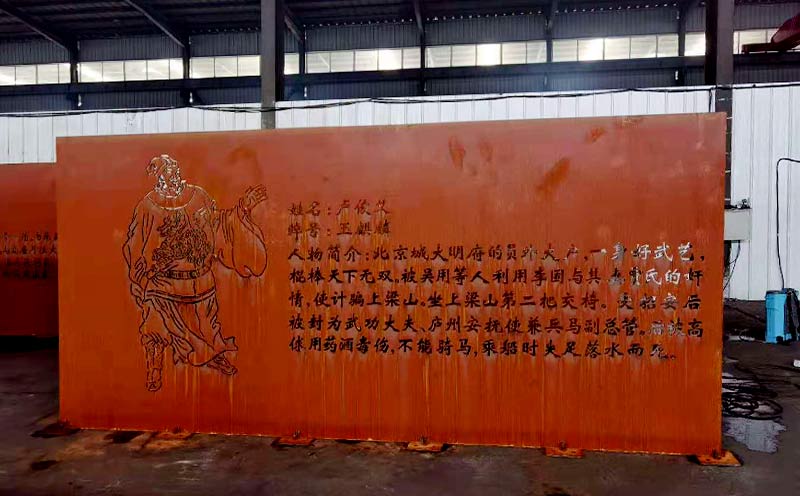 姓名:卢俊义
绰号:玉麒麟
人物简介:北京城大明府的员外大户,一身好武艺,
棍棒天下无双,被吴用等人利用李固与其 贾氏的奸
情,使计骗上梁山,坐上梁山第二把交椅。 招安后
被封为武功大夫、庐州安抚使兼兵马副总管。后被高
俅用药酒毒伤,不能骑马,乘船时失足落水而死。